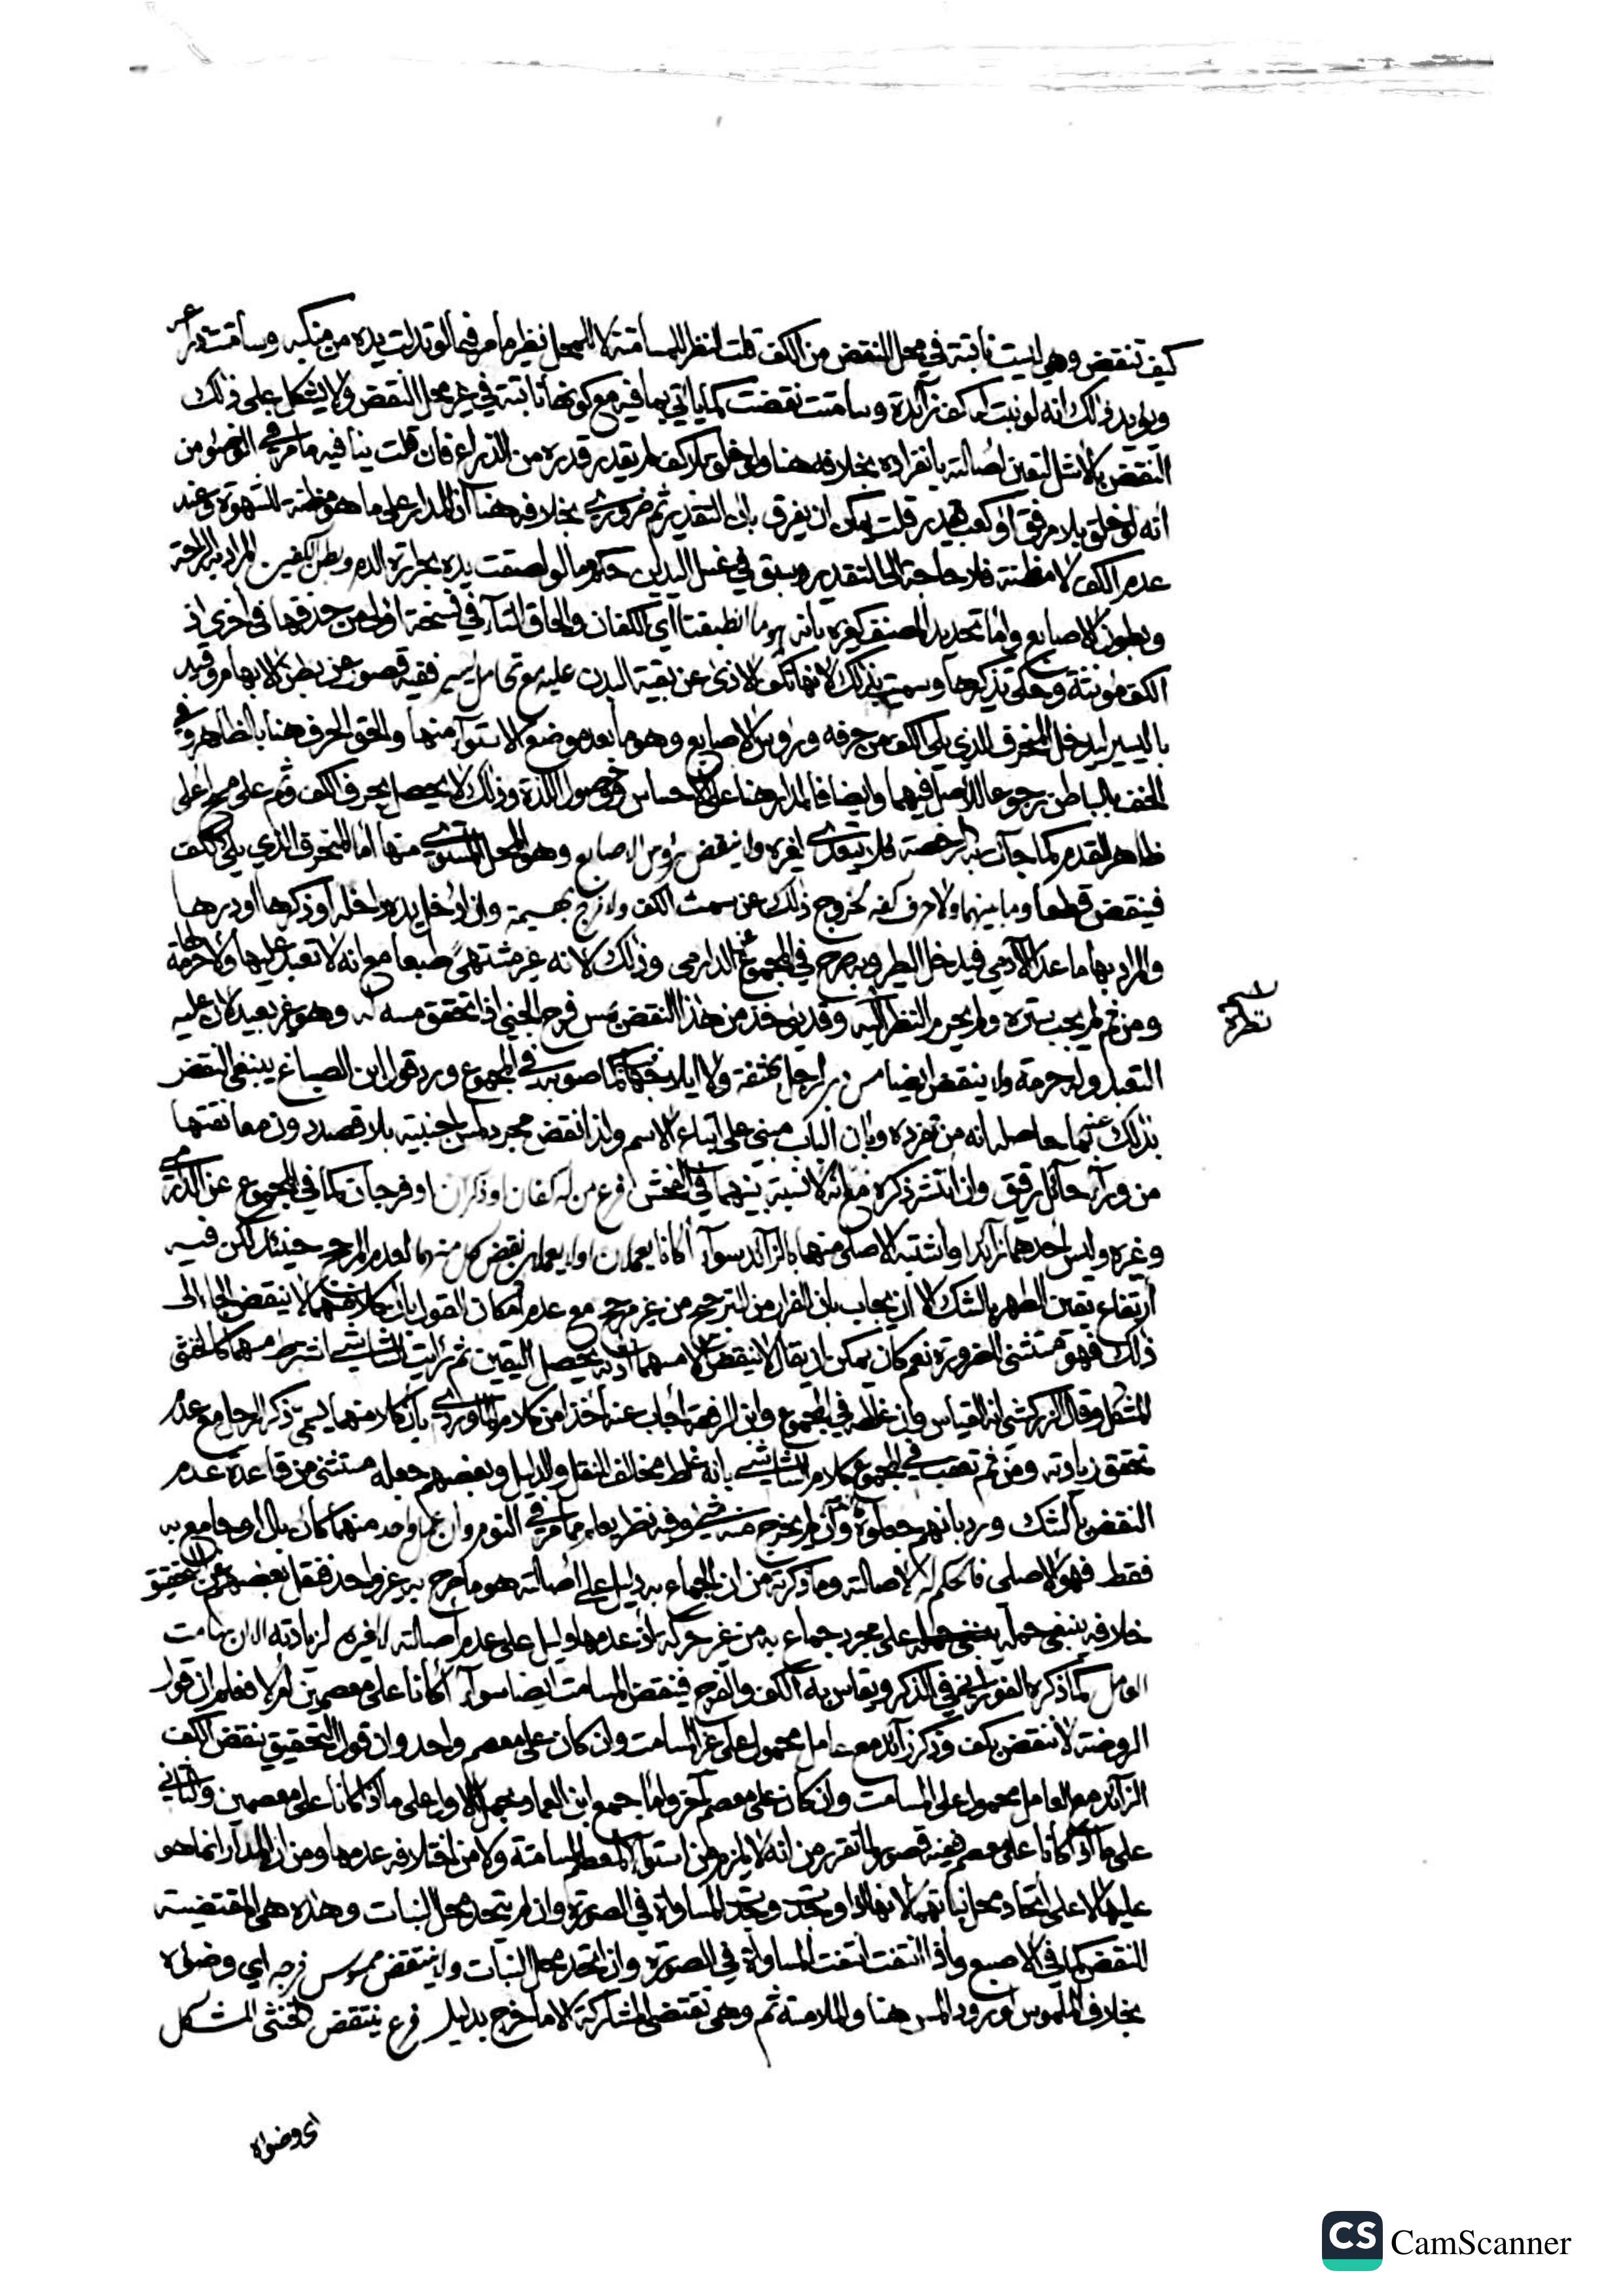 كيف تنقض وهي ليست نابتة في محل النقض من الكف قلت النظر للمسامتة لا للمحل نظير ما مر فيما لو تدلت يده من منكبه وسامتت
ويؤيد ذلك انه لو نبت له كف زايدة وسامتت نقضت كما ياتي بما فيه مع كونها نابتة في غير محل النقض ولا يشكل على ذلك
النقض بالاشل لتعين اصالته بانفراده بخلافه هنا ولو خلق بلا كف لم يقدر قدره من الذراع فان قلت ينافيه ما مر في الوضوء من
انه لو خلق بلا مرفق او كعب قدر قلت يمكن ان يفرق بان التقدير ثم ضروري بخلافه هنا اذ المدار على ما هو مظنة للشهوة وعند
عدم الكف لا مظنة فلا حاجة الى التقدير وسبق في غسل اليدين حكم ما لو لصقت يده بحرارة الدم وبطن الكفين المراد به الراحة
وبطون الاصابع واما تحديد المصنف كغيره بانه هو ما انطبقتا اي الكفان والحاق التاء في نسخة اولى من حذفها في اخرى اذ
الكف مؤنثة وحكي تذكيرها وسميت بذلك لانها تكف الاذى عن بقية البدن عليه مع تحامل يسير ففيه قصور عن بطن الابهام وقيد
باليسير ليدخل المنحرف الذي يلي الكف من حرفه ورؤس الاصابع وهو ما بعد موضع الاستواء منها والحق الحرف هنا بالظاهر وفي
الخف بالباطن رجوعا للاصل فيهما وايضا فالمدار هنا على الاحساس وحصول اللذة وذلك لا يحصل بحرف الكف وثم على مسح اعلى
ظاهر القدم كما جآت به الرخصة فلا يتعدى لغيره ولا ينقض رؤس الاصابع وهو المحل المستوي منها اما المنحرف الذي يلي الكف
فينقض قطعا وما بينهما ولا حرف كفه لخروج ذلك عن سمت الكف ولا فرج بهيمة وان ادخل يده داخله او ذكرها او دبرها
والمراد بها ما عدا الآدمي فيدخل الطير وبه صرح في المجموع عن الدارمي وذلك لانه غير مشتهى طبعا مع انه لا تعبد عليها ولا حرمة لها
ومن ثم لم يجب ستره ولم يحرم النظر اليه وقد يؤخذ من هذا النقض بمس فرج الجني اذا تحقق مسه له وهو غير بعيد لان عليه
نسخة
نظره
التعبد وله حرمة ولا ينقض ايضا مس دبر الرجل بخنفة ولا ايلاجه كما صوبه في المجموع ورد قول ابن الصباغ ينبغي النقض
بذلك عنهما حاصله انه من تفرده وبان الباب مبني على اتباع الاسم ولذا نقض مجرد لمس اجنبية بلا قصد دون معانقتها
من ورآء حائل رقيق وان انتشر ذكره مع انه لا نسبة بينهما في الفحش فرع من له كفان او ذكران او فرجان كما في المجموع عن الدارمي
وغيره وليس احدهما زائدا او اشتبه الاصلي منهما بالزائد سوآء كانا يعملان او لا يعملان نقض كل منهما لعدم المرجح حينئذ لكن فيه
ارتفاع يقين الطهر بالشك الا ان يجاب بان الفرار من الترجيح من غير مرجح مع عدم امكان القول بان كلا منهما لا ينقض الجاء الى
ذلك فهو مستثنى للضرورة نعم كان يمكن ان يقال لا ينقض الا مسهما اذ به يحصل اليقين ثم رايت الشاشي اشترط مسهما كالخنثى
المشكل وقال الزركشي انه القياس وان غلطه في المجموع وابن الرفعة اجاب عنه اخذا من كلام الماوردي بان كلا منهما يسمى ذكر الرجل مع عدم
تحقق زيادته ومن ثم تعقب في المجموع كلام الشاشي بانه غلط مخالف للنقل والدليل وبعضهم جعله مستثنى من قاعدة عدم
النقض بالشك ورد بانهم جعلوه وان لم يخرج منه شيء وفيه نظر يعلم مما مر في النوم وان عمل واحد منهما كان بال او جامع به
فقط فهو الاصلي فالحكم له لاصالته وما ذكرته من ان الجماع به دليل على اصالته هو ما صرح به غير واحد فنقل بعضهم عن التحقيق
خلافه ينبغي حمله على مجرد جماع به من غير حركة اذ عدمها دليل على عدم اصالته لا غيره لزيادته الا ان سامت
العامل كما ذكره الفوراني في الذكر ويقاس به الكف والفرج فينقض المسامت ايضا سوآء اكانا على معصمين ام لا فعلم ان قول
الروضة لا نقض بكف وذكر زائد مع عامل محمول على غير المسامت وان كان على معصم واحد وان قول التحقيق نقض الكف
الزائد مع العامل محمول على المسامت وان كان على معصم آخر واما جمع ابن العماد بحمل الاول على ما اذا كانا على معصمين والثاني
على ما اذا كانا على معصم ففيه قصور لما تقرر من انه لا يلزم من استواء المعصم المسامتة ولا من اختلافه عدمها ومن ان المدار انما هو
عليها لا على اتحاد محل نباتهما لانها اذا وجدت وجدت المساواة في الصورة وان لم يتحد محل النبات وهذه هي المقتضية
للنقض كما في الاصبع واذا انتفت انتفت المساواة في الصورة وان اتحد محل النبات ولا ينتقض ممسوس فرجه اي وضوئه
بخلاف الملموس لورود المس هنا والملامسة ثم وهي تقتضي المشاركة الا ما خرج بدليل فرع ينتقض الخنثى المشكل
اي وضواه
CS CamScanner